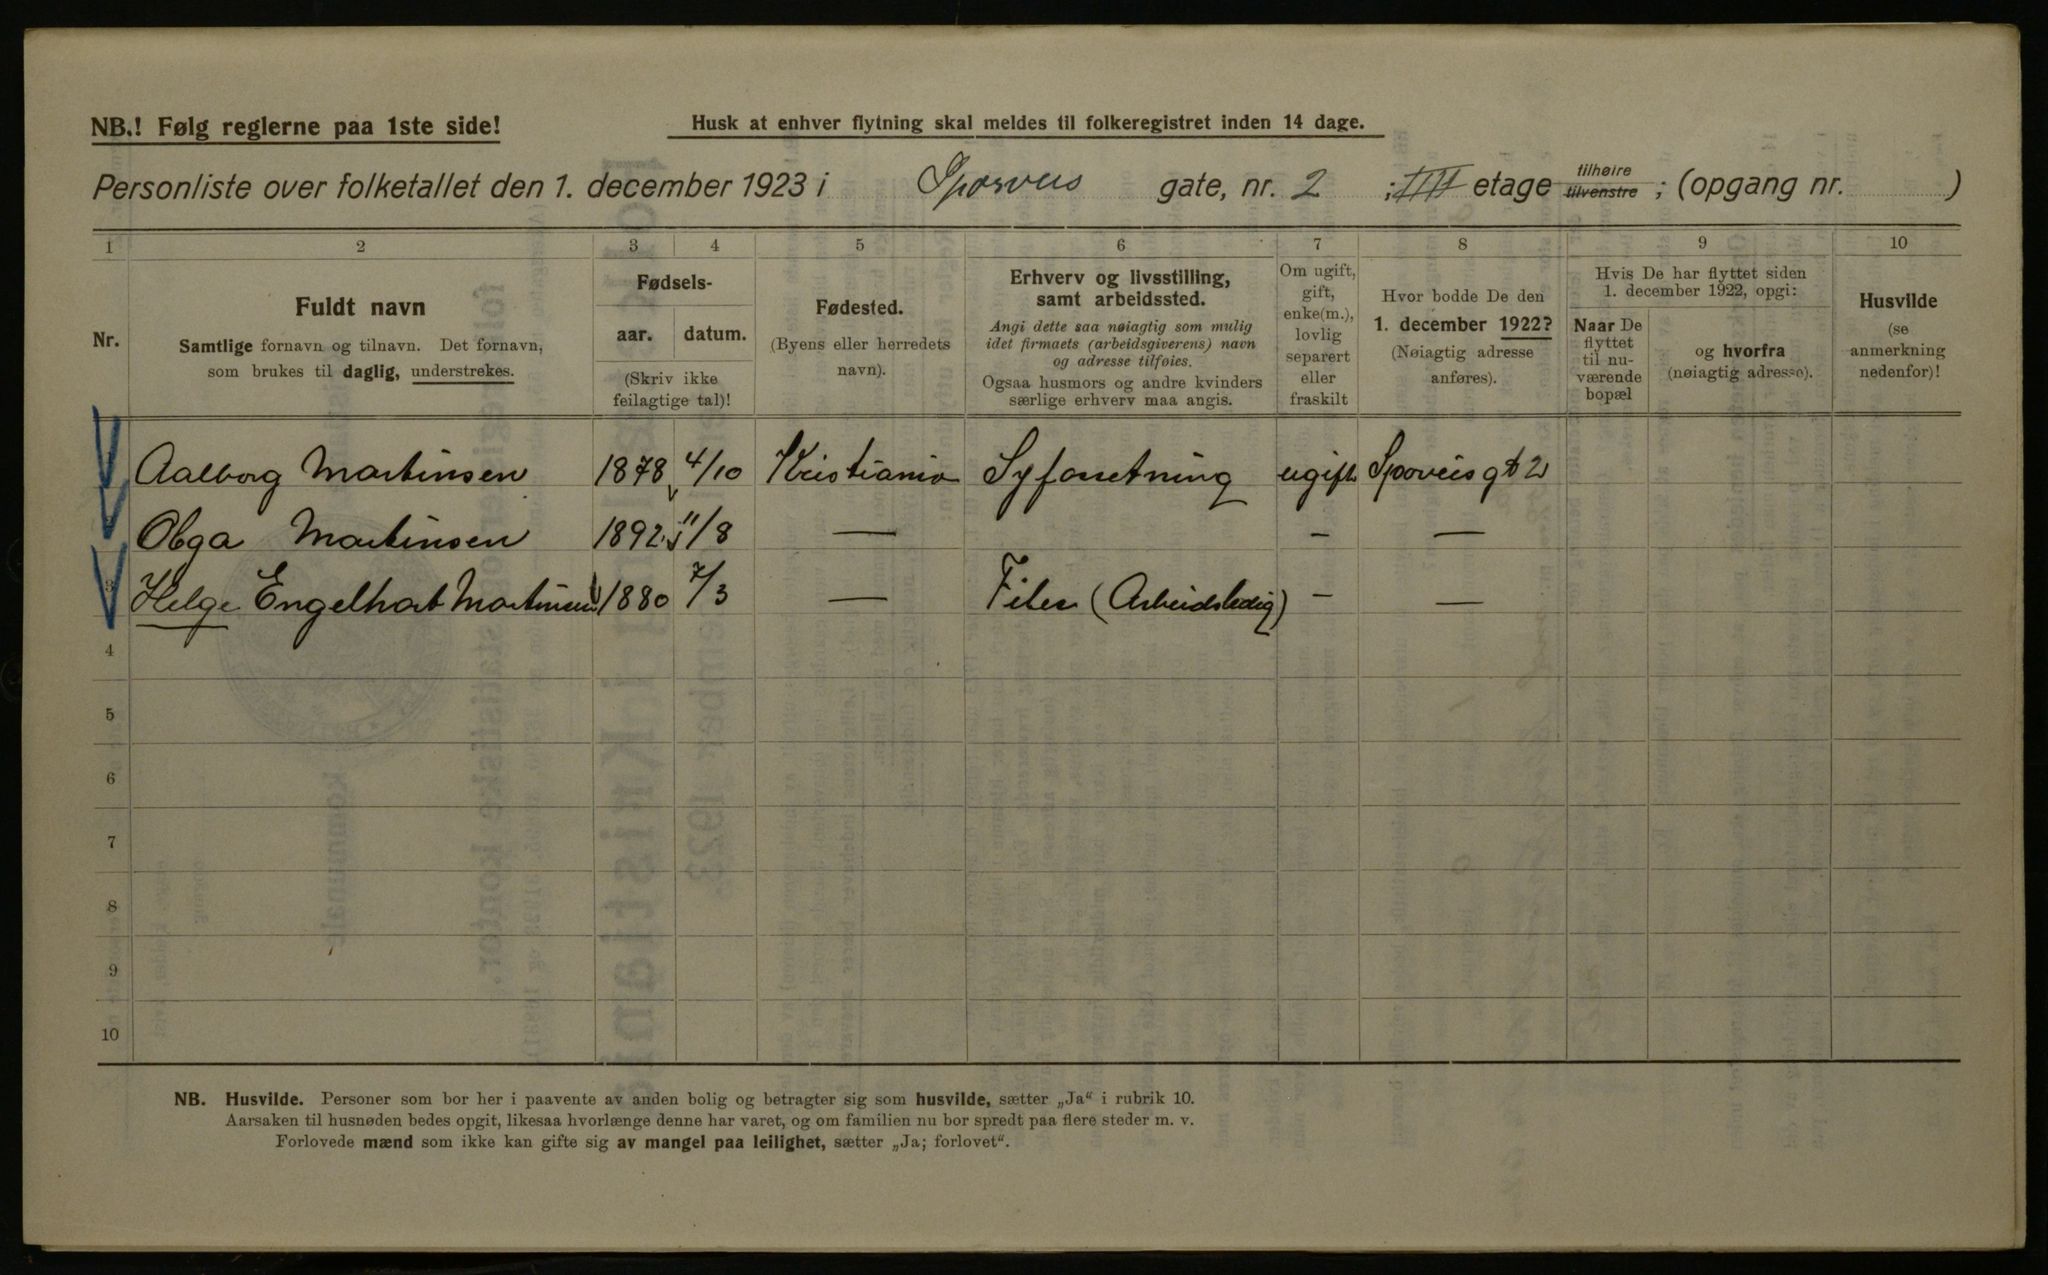 NB.! Følg reglerne paa 1ste side!
Husk at enhver flytning skal meldes til folkeregistret inden 14 dage.
Personliste over folketallet den 1. december 1923 i Sporveis gate, nr. 2 ; IIII etage tilhøire tilvenstre ; (opgang nr. )
1 2 3 4 5 6 7 8 9 10
Nr.
Fuldt navn
Samtlige fornavn og tilnavn. Det fornavn,
som brukes til daglig, understrekes.
Fødsels-
aar. datum.
(Skriv ikke
feilagtige tal)!
Fødested.
(Byens eller herredets
navn).
Erhverv og livsstilling,
samt arbeidssted.
Angi dette saa nøiagtig som mulig
idet firmaets (arbeidsgiverens) navn
og adresse tilføies.
Ogsaa husmors og andre kvinders
særlige erhverv maa angis.
Om ugift,
gift,
enke(m.),
lovlig
separert
eller
fraskilt
Hvor bodde De den
1. december 1922?
(Nøiagtig adresse
anføres).
Hvis De har flyttet siden
1. december 1922, opgi:
Naar De
flyttet
til nu-
værende
bopæl
og hvorfra
(nøiagtig adresse).
Husvilde
(se
anmerkning
nedenfor)!
Aalborg Martinsen 1878 4/10 Kristiania Syforretning ugift Sporveisgt 2
Olga Martinsen 1892 11/8 — – —
3 Helge Engelhart Martinsen 1880 7/3 — Filer (Arbeidsledig) – —
4
5
6
7
8
9
10
NB. Husvilde. Personer som bor her i paavente av anden bolig og betragter sig som husvilde, sætter „Ja“ i rubrik 10.
Aarsaken til husnøden bedes opgit, likesaa hvorlænge denne har varet, og om familien nu bor spredt paa flere steder m. v.
Forlovede mænd som ikke kan gifte sig av mangel paa leilighet, sætter „Ja; forlovet“.